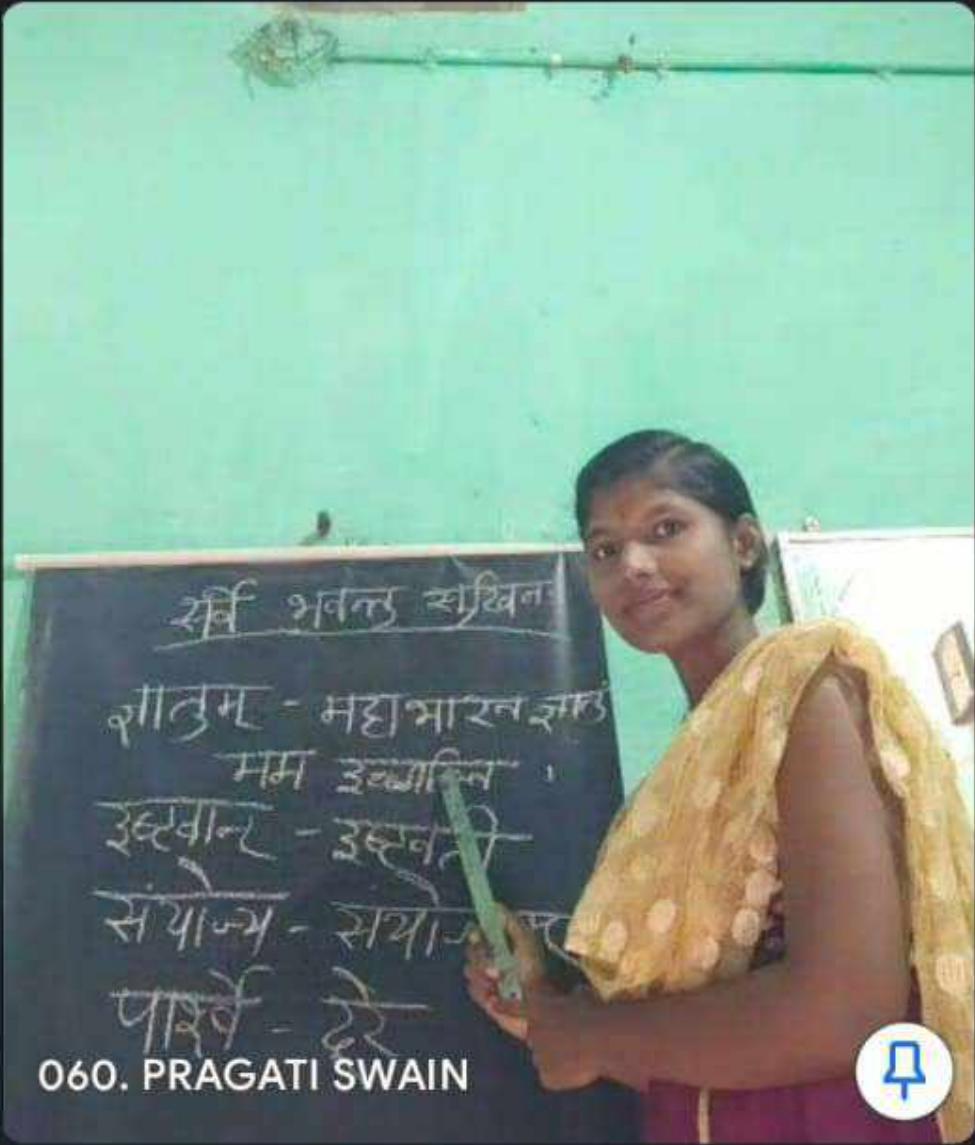 सर्वे भवन्तु सुखिन
ज्ञातुम् - महाभारत ज्ञातु
मम
इष्टवान् - इष्टवती
संयोज्य -
पार्श्वे - दूरे
060. PRAGATI SWAIN